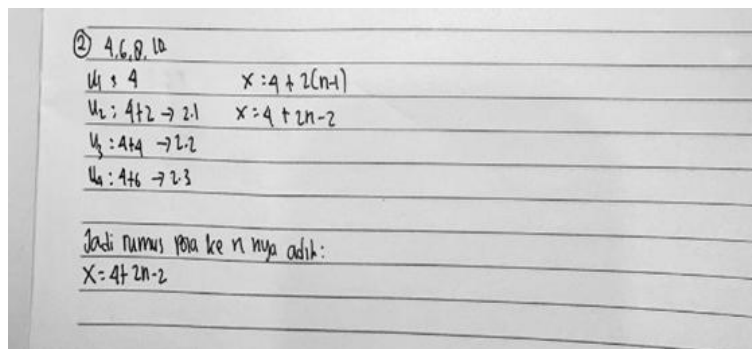 ② 4, 6, 8, 10
U₁ : 4 x : 4 + 2(n-1)
U₂ : 4+2 → 2.1 x = 4 + 2n-2
U₃ : 4+4 → 2.2
U₄ : 4+6 → 2.3
Jadi rumus pola ke n nya adlh :
x = 4 + 2n-2